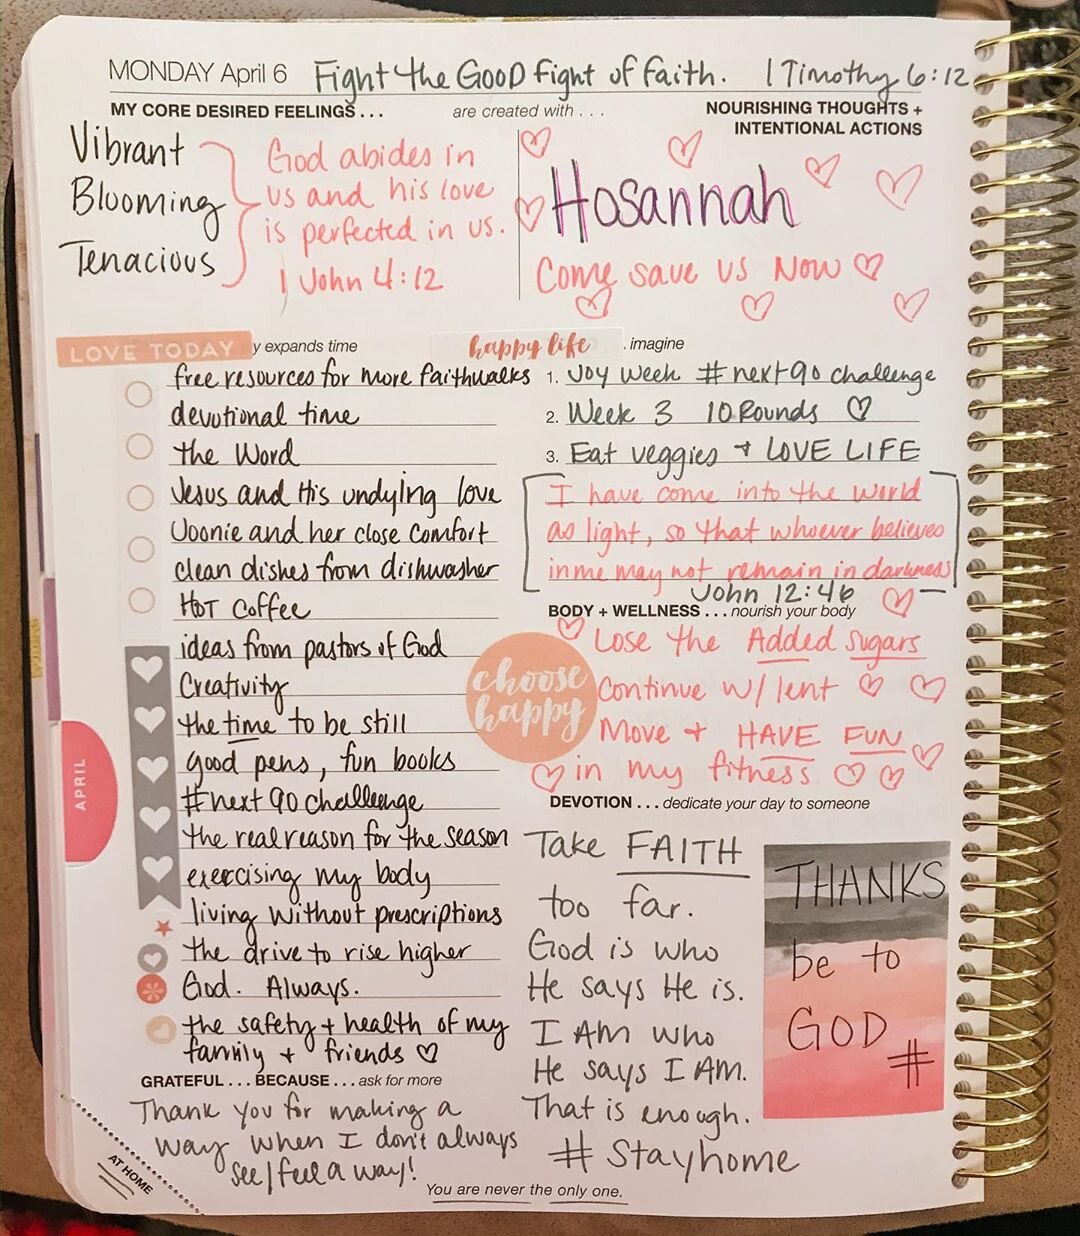 MONDAY April 6 Fight the GOOD Fight of Faith. 1 Timothy 6:12
MY CORE DESIRED FEELINGS . . . are created with . . . NOURISHING THOUGHTS +
INTENTIONAL ACTIONS
Vibrant
Blooming
Tenacious
God abides in
us and his love
is perfected in us.
1 John 4:12
Hosannah
Come save us Now
LOVE TODAY y expands time
free resources for more faithwalks
devotional time
the Word
Jesus and His undying love
and her close comfort
clean dishes from dishwasher
HOT Coffee
ideas from pastors of God
Creativity
the time to be still
good pens, fun books
#next90challenge
the real reason for the season
exercising my body
living without prescriptions
the drive to rise higher
God. Always.
the safety + health of my
family + friends
happy life . imagine
1. Joy Week #next90challenge
2. Week 3 10 Rounds
3. Eat veggies + LOVE LIFE
I have come into the world
as light, so that whoever believes
in me may not remain in darkness
John 12:46
BODY + WELLNESS . . . nourish your body
Lose the Added Sugars
Continue w/ lent
Move + HAVE FUN
in my fitness
choose
happy
APRIL
DEVOTION . . . dedicate your day to someone
Take FAITH
too far.
God is who
He says He is.
I AM who
He says I AM.
That is enough.
#Stayhome
THANKS
be to
GOD
#
GRATEFUL . . . BECAUSE . . . ask for more
Thank you for making a
way when I don't always
see/feel a way!
AT HOME
You are never the only one.